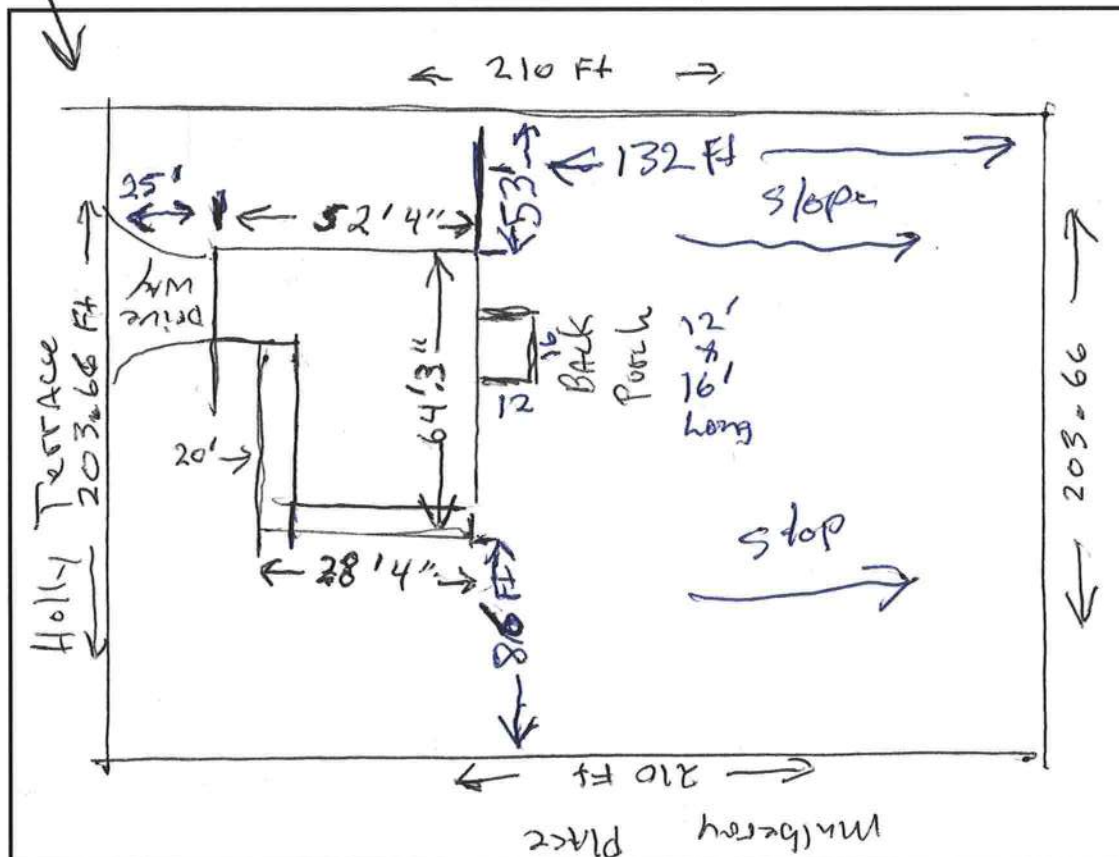 210 Ft
25'
52'4"
53'
132 Ft
slope
Drive
way
Holly Terrace
203.66 Ft
64'3"
16
12
BACK
Porch
12'
x
16'
Long
203.66
20'
28'4"
86 Ft
slop
210 Ft
Mulberay
Place